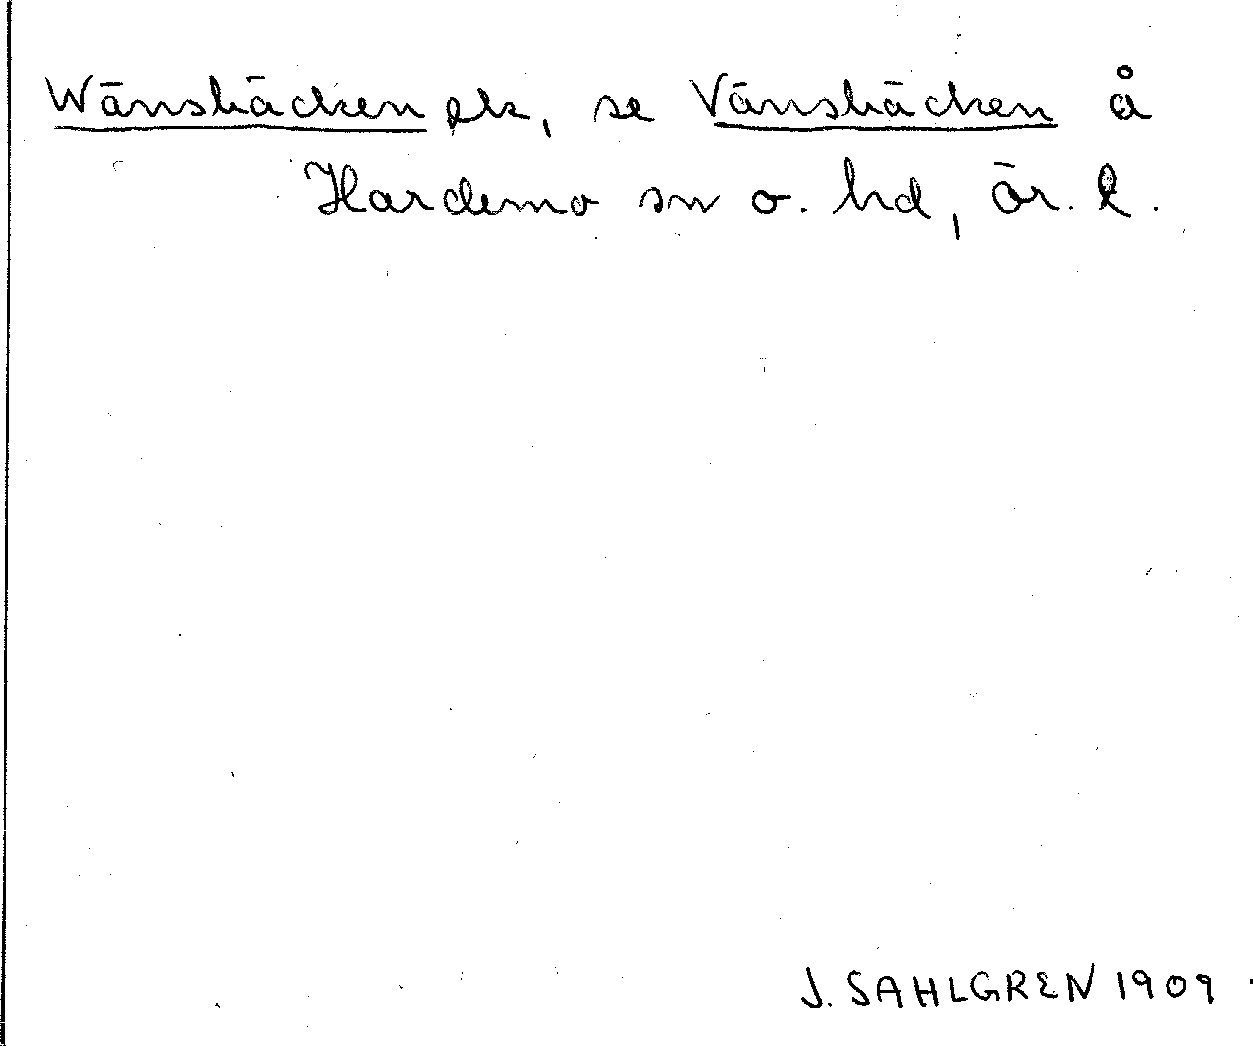 Wänsbäcken ek, se Vänsbäcken å
Hardemo sn o. hd, Ör. l.
J. SAHLGREN 1909